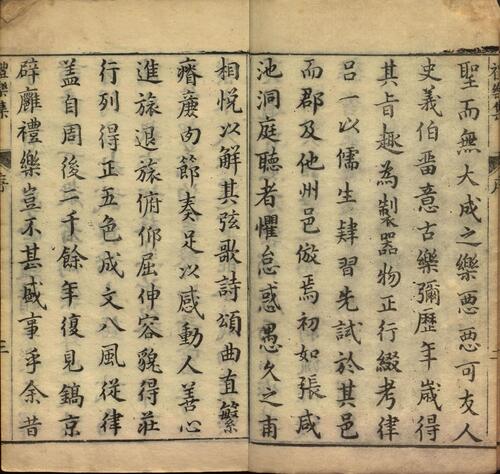 聖而無大成之樂惡惡可友人
史義伯畱意古樂彌歷年歲得
其旨趣為製器物正行綴考律
呂一以儒生肄習先試於其邑
而郡及他州邑倣焉初如張咸
池洞庭聽者懼怠惑愚久之甫
相悅以解其弦歌詩頌曲直繁
瘠廉肉節奏足以感動人善心
進旅退旅俯仰屈伸容貌得莊
行列得正五色成文八風從律
蓋自周後二千餘年復見鎬京
辟廱禮樂豈不甚盛事乎余昔
禮樂集
序
三